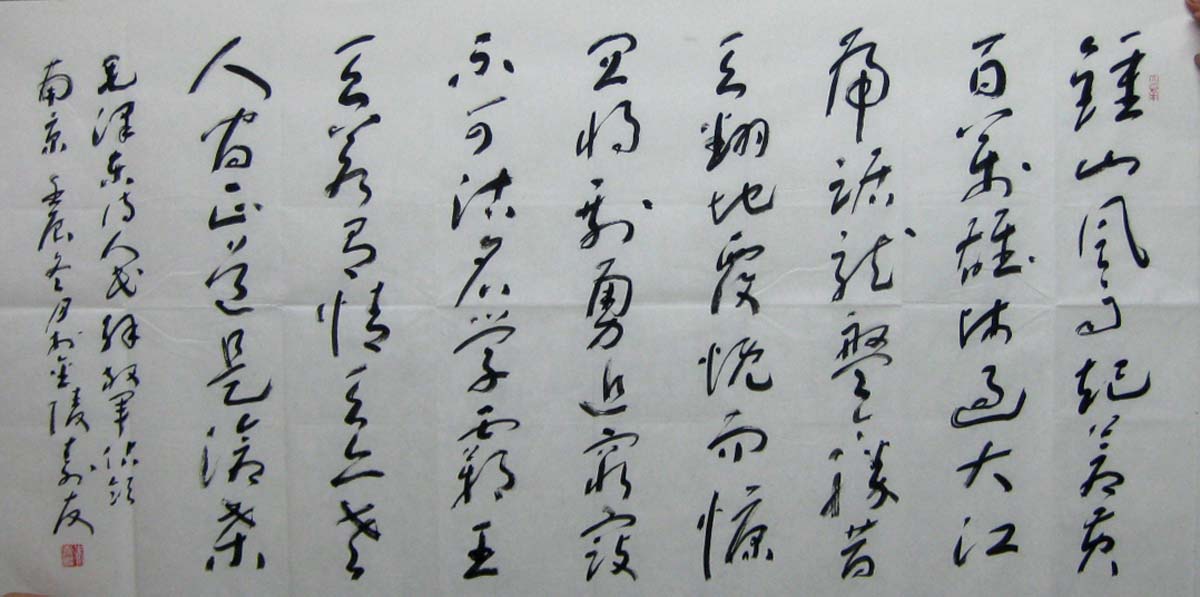 鍾山風雨起蒼黄
百萬雄師過大江
虎踞龍盤今勝昔
天翻地覆慨而慷
宜將剩勇追窮寇
不可沽名學霸王
天若有情天亦老
人間正道是滄桑
毛澤東詩人民解放軍佔領
南京 壬辰冬月於金陵友